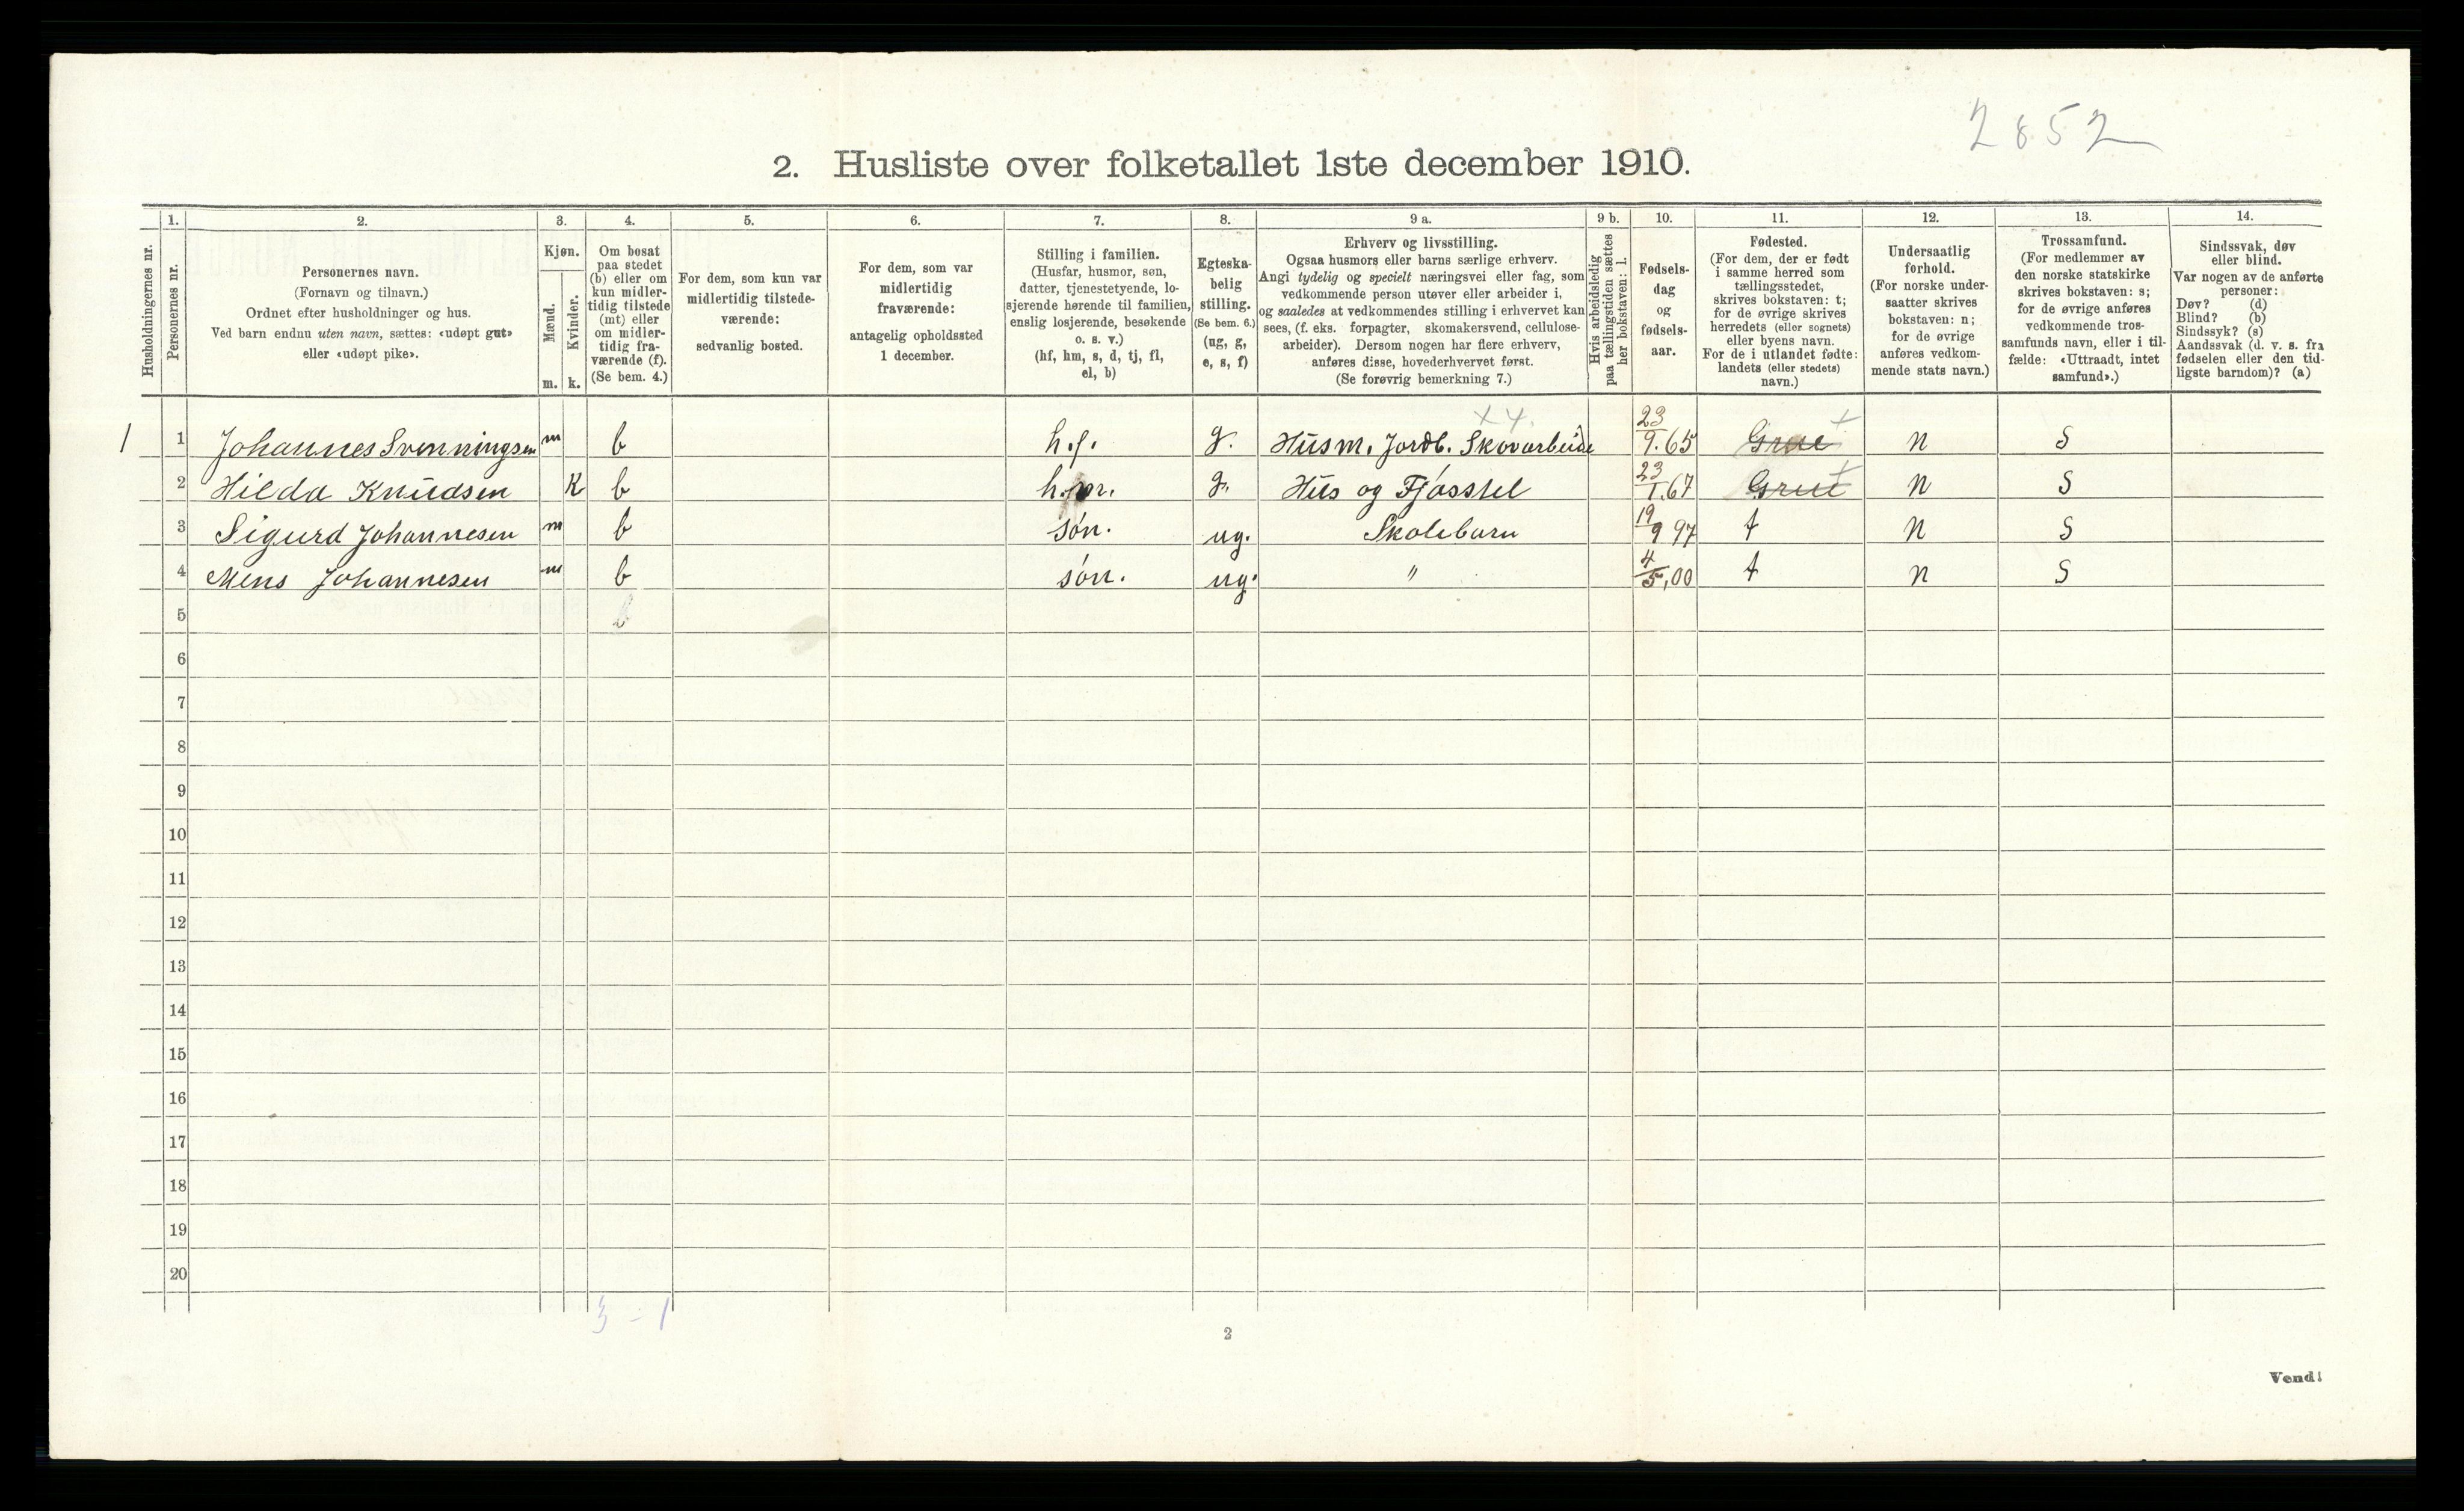 2852
2. Husliste over folketallet 1ste december 1910.
Husholdningernes nr.
1.
Personernes nr.
2.
Personernes navn.
(Fornavn og tilnavn.)
Ordnet efter husholdninger og hus.
Ved barn endnu uten navn, sættes: «udøpt gut»
eller «udøpt pike».
3.
Kjøn.
Mænd.
Kvinder.
m. k.
4.
Om bosat
paa stedet
(b) eller om
kun midler-
tidig tilstede
(mt) eller
om midler-
tidig fra-
værende (f).
(Se bem. 4.)
5.
For dem, som kun var
midlertidig tilstede-
værende:
sedvanlig bosted.
6.
For dem, som var
midlertidig
fraværende:
antagelig opholdssted
1 december.
7.
Stilling i familien.
(Husfar, husmor, søn,
datter, tjenestetyende, lo-
sjerende hørende til familien,
enslig losjerende, besøkende
o. s. v.)
(hf, hm, s, d, tj, fl,
el, b)
8.
Egteska-
belig
stilling.
(Se bem. 6.)
(ug, g,
e, s, f)
9 a.
Erhverv og livsstilling.
Ogsaa husmors eller barns særlige erhverv.
Angi tydelig og specielt næringsvei eller fag, som
vedkommende person utøver eller arbeider i,
og saaledes at vedkommendes stilling i erhvervet kan
sees, (f. eks. forpagter, skomakersvend, cellulose-
arbeider). Dersom nogen har flere erhverv,
anføres disse, hovederhvervet først.
(Se forøvrig bemerkning 7.)
9 b.
Hvis arbeidsledig
paa tællingstiden sættes
her bokstaven: l.
10.
Fødsels-
dag
og
fødsels-
aar.
11.
Fødested.
(For dem, der er født
i samme herred som
tællingsstedet,
skrives bokstaven: t;
for de øvrige skrives
herredets (eller sognets)
eller byens navn.
For de i utlandet fødte:
landets (eller stedets)
navn.)
12.
Undersaatlig
forhold.
(For norske under-
saatter skrives
bokstaven: n;
for de øvrige
anføres vedkom-
mende stats navn.)
13.
Trossamfund.
(For medlemmer av
den norske statskirke
skrives bokstaven: s;
for de øvrige anføres
vedkommende tros-
samfunds navn, eller i til-
fælde: «Uttraadt, intet
samfund».)
14.
Sindssvak, døv
eller blind.
Var nogen av de anførte
personer:
Døv? (d)
Blind? (b)
Sindssyk? (s)
Aandssvak (d. v. s. fra
fødselen eller den tid-
ligste barndom)? (a)
x 4.
1 1 Johannes Svenningsen m b h.f. g. Husm. Jordb. Skovarbeide 23/9.65 Grue t n S
2 Hilda Knudsen K b h.m. g. Hus og Fjósstel 23/1.67 Grue t n S
3 Sigurd Johannesen m b søn. ug. Skolebarn 19/9 97 t n S
4 Mens Johannesen m b søn. ug. " 4/5,00 t n S
5 b
6
7
8
9
10
11
12
13
14
15
16
17
18
19
20
3 - 1
2
Vend!